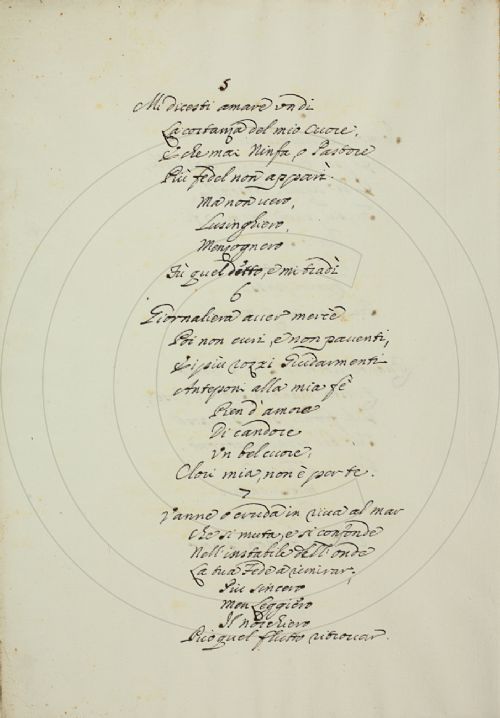 5
Mi dicesti amare un dì
La costanza del mio Cuore,
E che mai Ninfa, o Pastore
Più fedel non apparì.
Ma non vero,
Lusinghiero,
Menzognero
Fù quel detto, e mi tradì
6
Giornaliera aver mercè
Poi non curi, e non paventi,
E i più rozzi
Anteponi alla mia fè
Pien d'amore
Di candore
Un bel cuore,
Clori mia, non è per te.
7
Vanne o cruda in riva al mar
Che si muta, e si confonde
Nell'instabile dell'onde
La tua Fede a rimirar;
Più sincero
Men leggiero
Il nocchiero
Può quel flutto ritrovar.